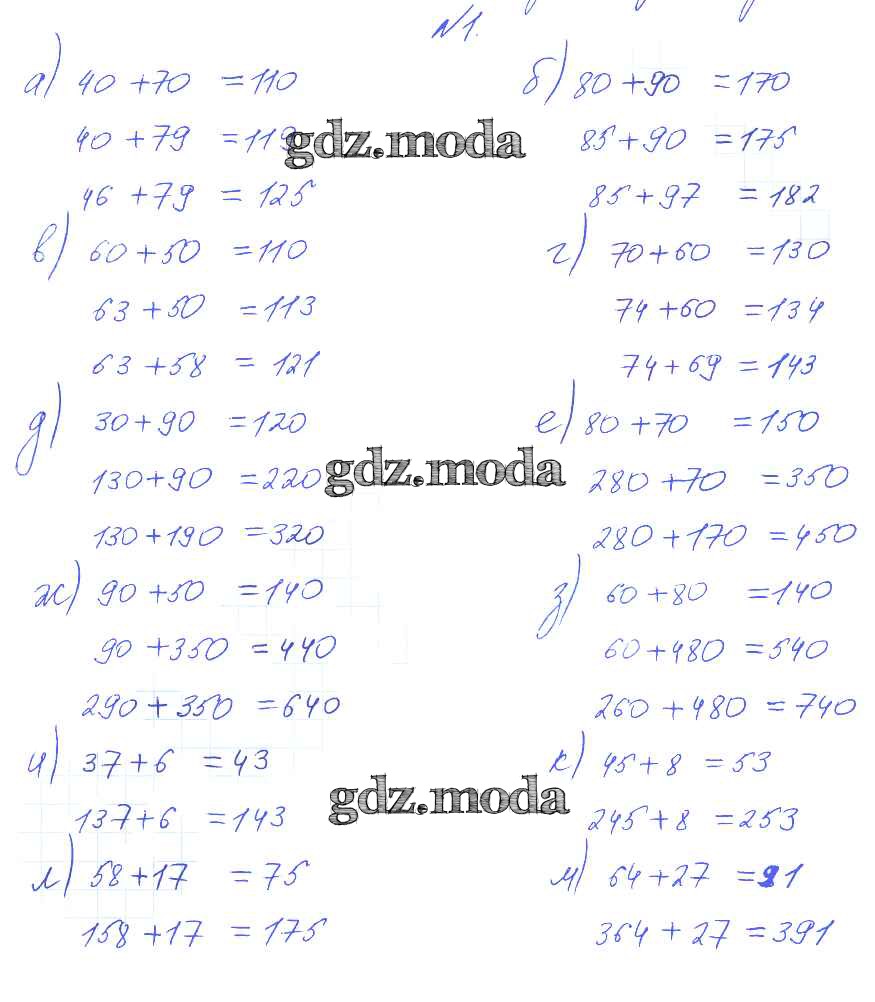 №1.
а) 40 + 70 = 110
40 + 79 = 119
46 + 79 = 125
б) 80 + 90 = 170
85 + 90 = 175
85 + 97 = 182
в) 60 + 50 = 110
63 + 50 = 113
63 + 58 = 121
г) 70 + 60 = 130
74 + 60 = 134
74 + 69 = 143
д) 30 + 90 = 120
130 + 90 = 220
130 + 190 = 320
е) 80 + 70 = 150
280 + 70 = 350
280 + 170 = 450
ж) 90 + 50 = 140
90 + 350 = 440
290 + 350 = 640
з) 60 + 80 = 140
60 + 480 = 540
260 + 480 = 740
и) 37 + 6 = 43
137 + 6 = 143
к) 45 + 8 = 53
245 + 8 = 253
л) 58 + 17 = 75
158 + 17 = 175
м) 64 + 27 = 91
364 + 27 = 391
gdz.moda
gdz.moda
gdz.moda